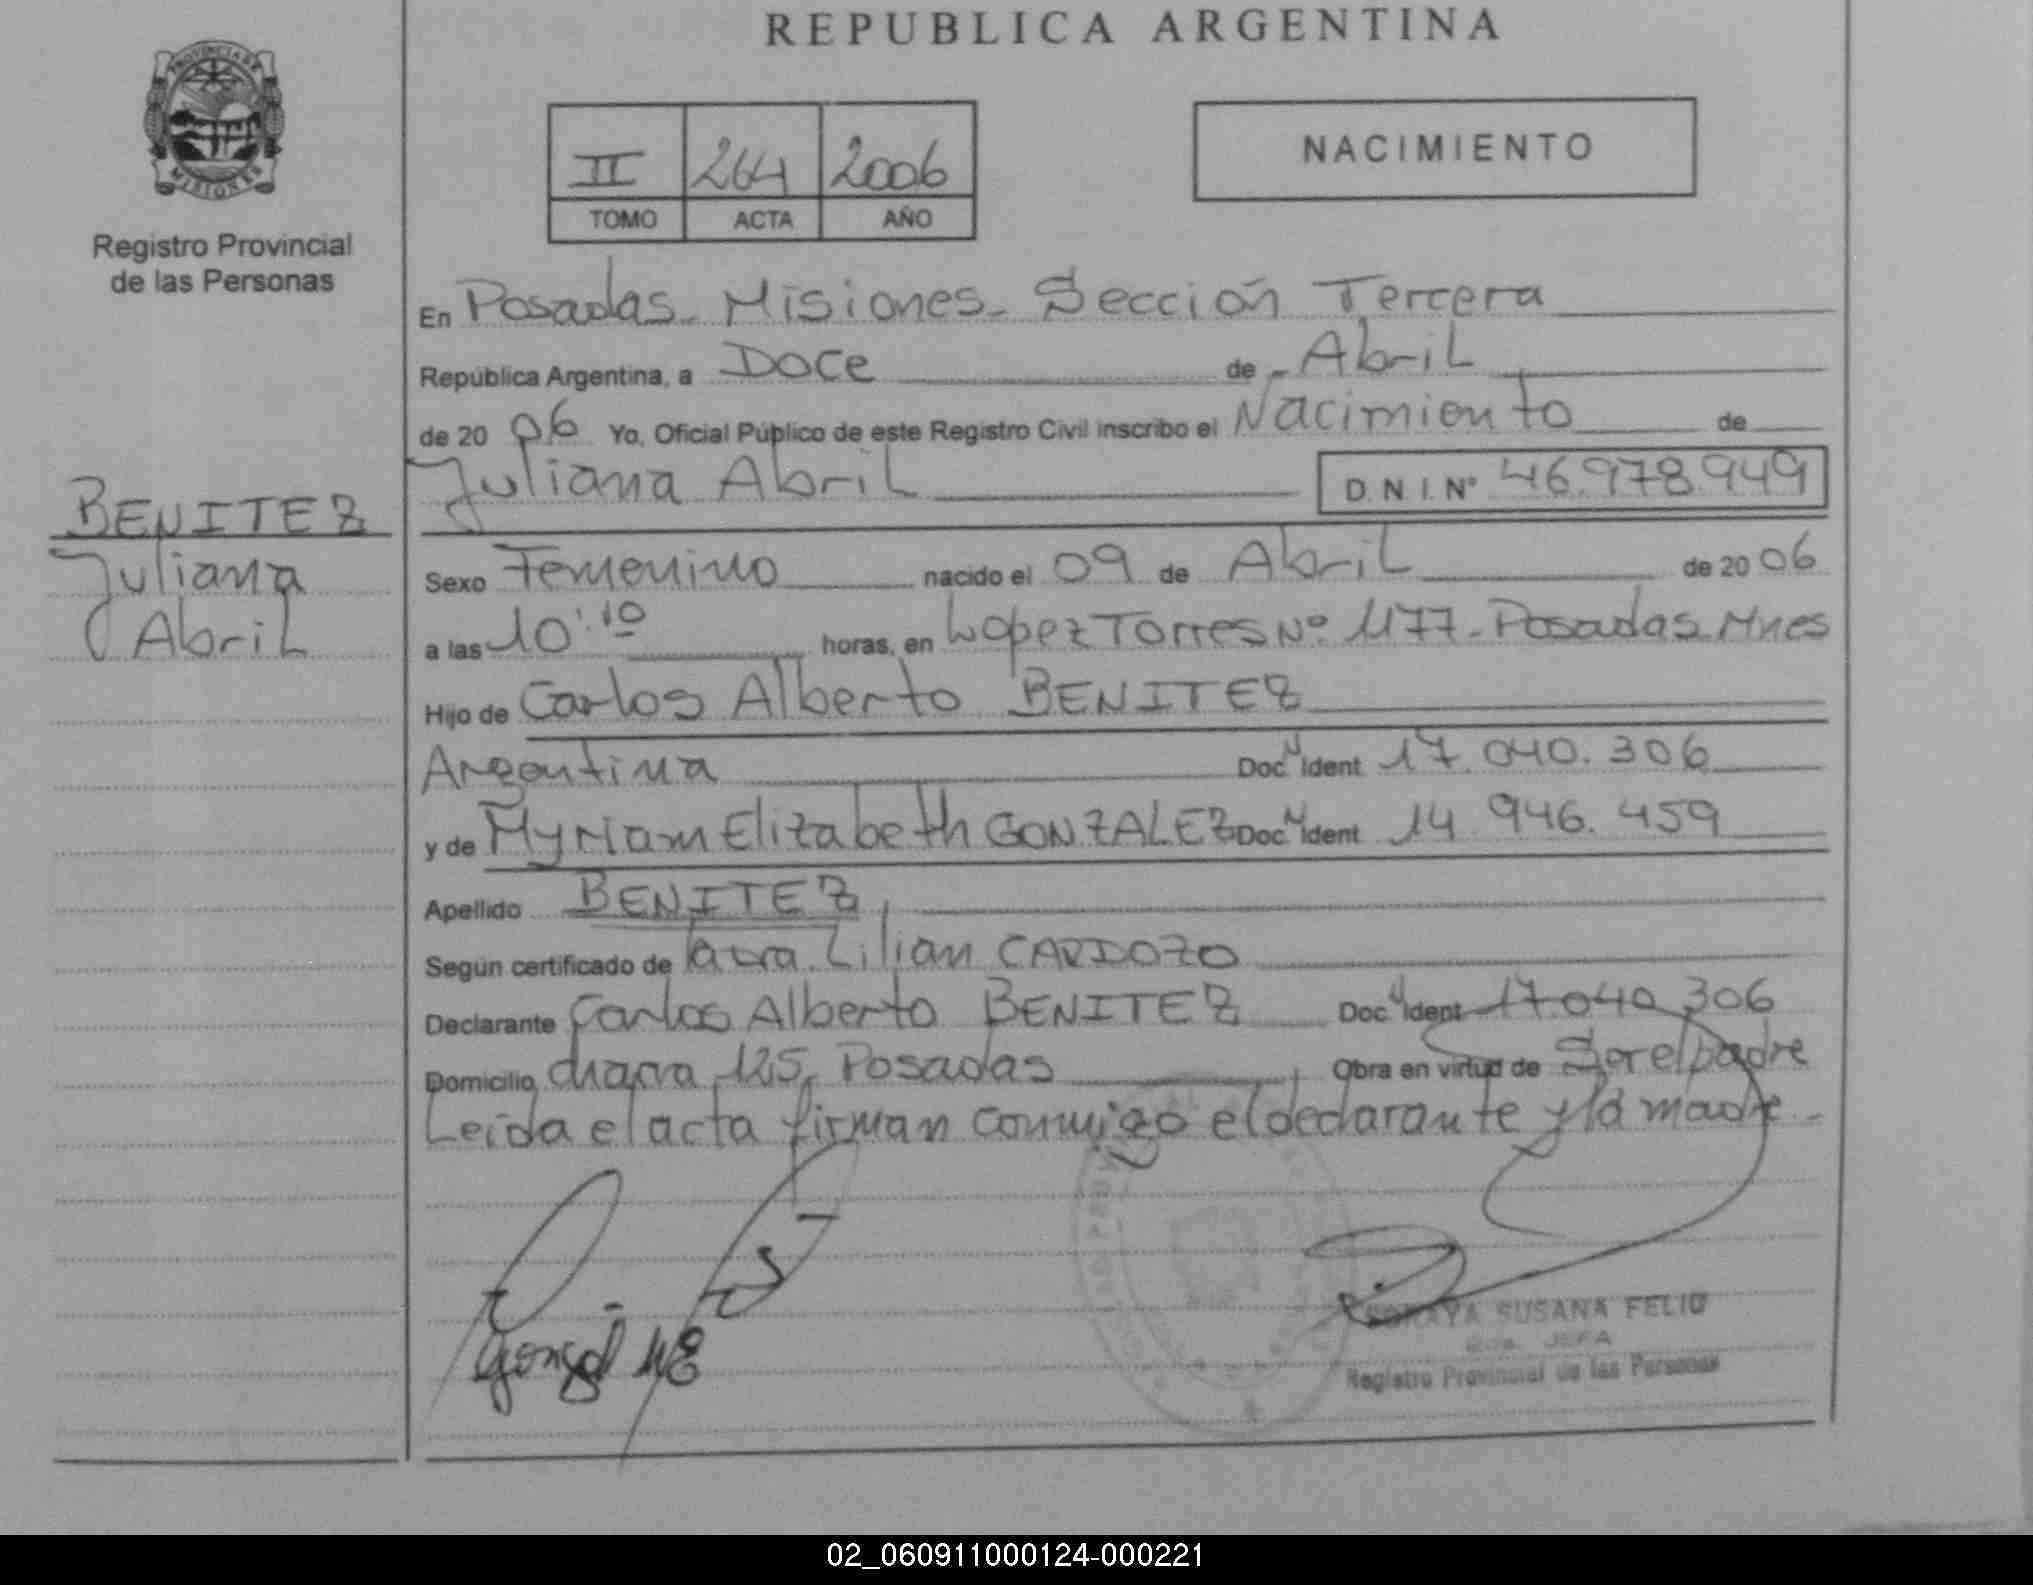 REPUBLICA ARGENTINA
PROVINCIA DE
MISIONES
Registro Provincial
de las Personas
II 264 2006
TOMO ACTA AÑO
NACIMIENTO
En Posadas - Misiones - Sección Tercera
República Argentina, a Doce de Abril
de 20 06 Yo, Oficial Público de este Registro Civil inscribo el Nacimiento de
Juliana Abril D.N.I. Nº 46.978.949
BENITEZ
Juliana
Abril
Sexo Femenino nacido el 09 de Abril de 20 06
a las 10:10 horas, en Lopez Torres Nº 1177 - Posadas Mnes
Hijo de Carlos Alberto BENITEZ
Argentina Doc. Ident 17.040.306
y de Myriam Elizabeth GONZALEZ Doc. Ident 14.946.459
Apellido BENITEZ
Según certificado de Lilian CARDOZO
Declarante Carlos Alberto BENITEZ Doc. Ident 17.040.306
Domicilio chacra 125, Posadas Obra en virtud de Ser el padre
Leida el acta firman conmigo el declarante y la madre -
SORAYA SUSANA FELIU
JEFA
Registro Provincial de las Personas
02_060911000124-000221